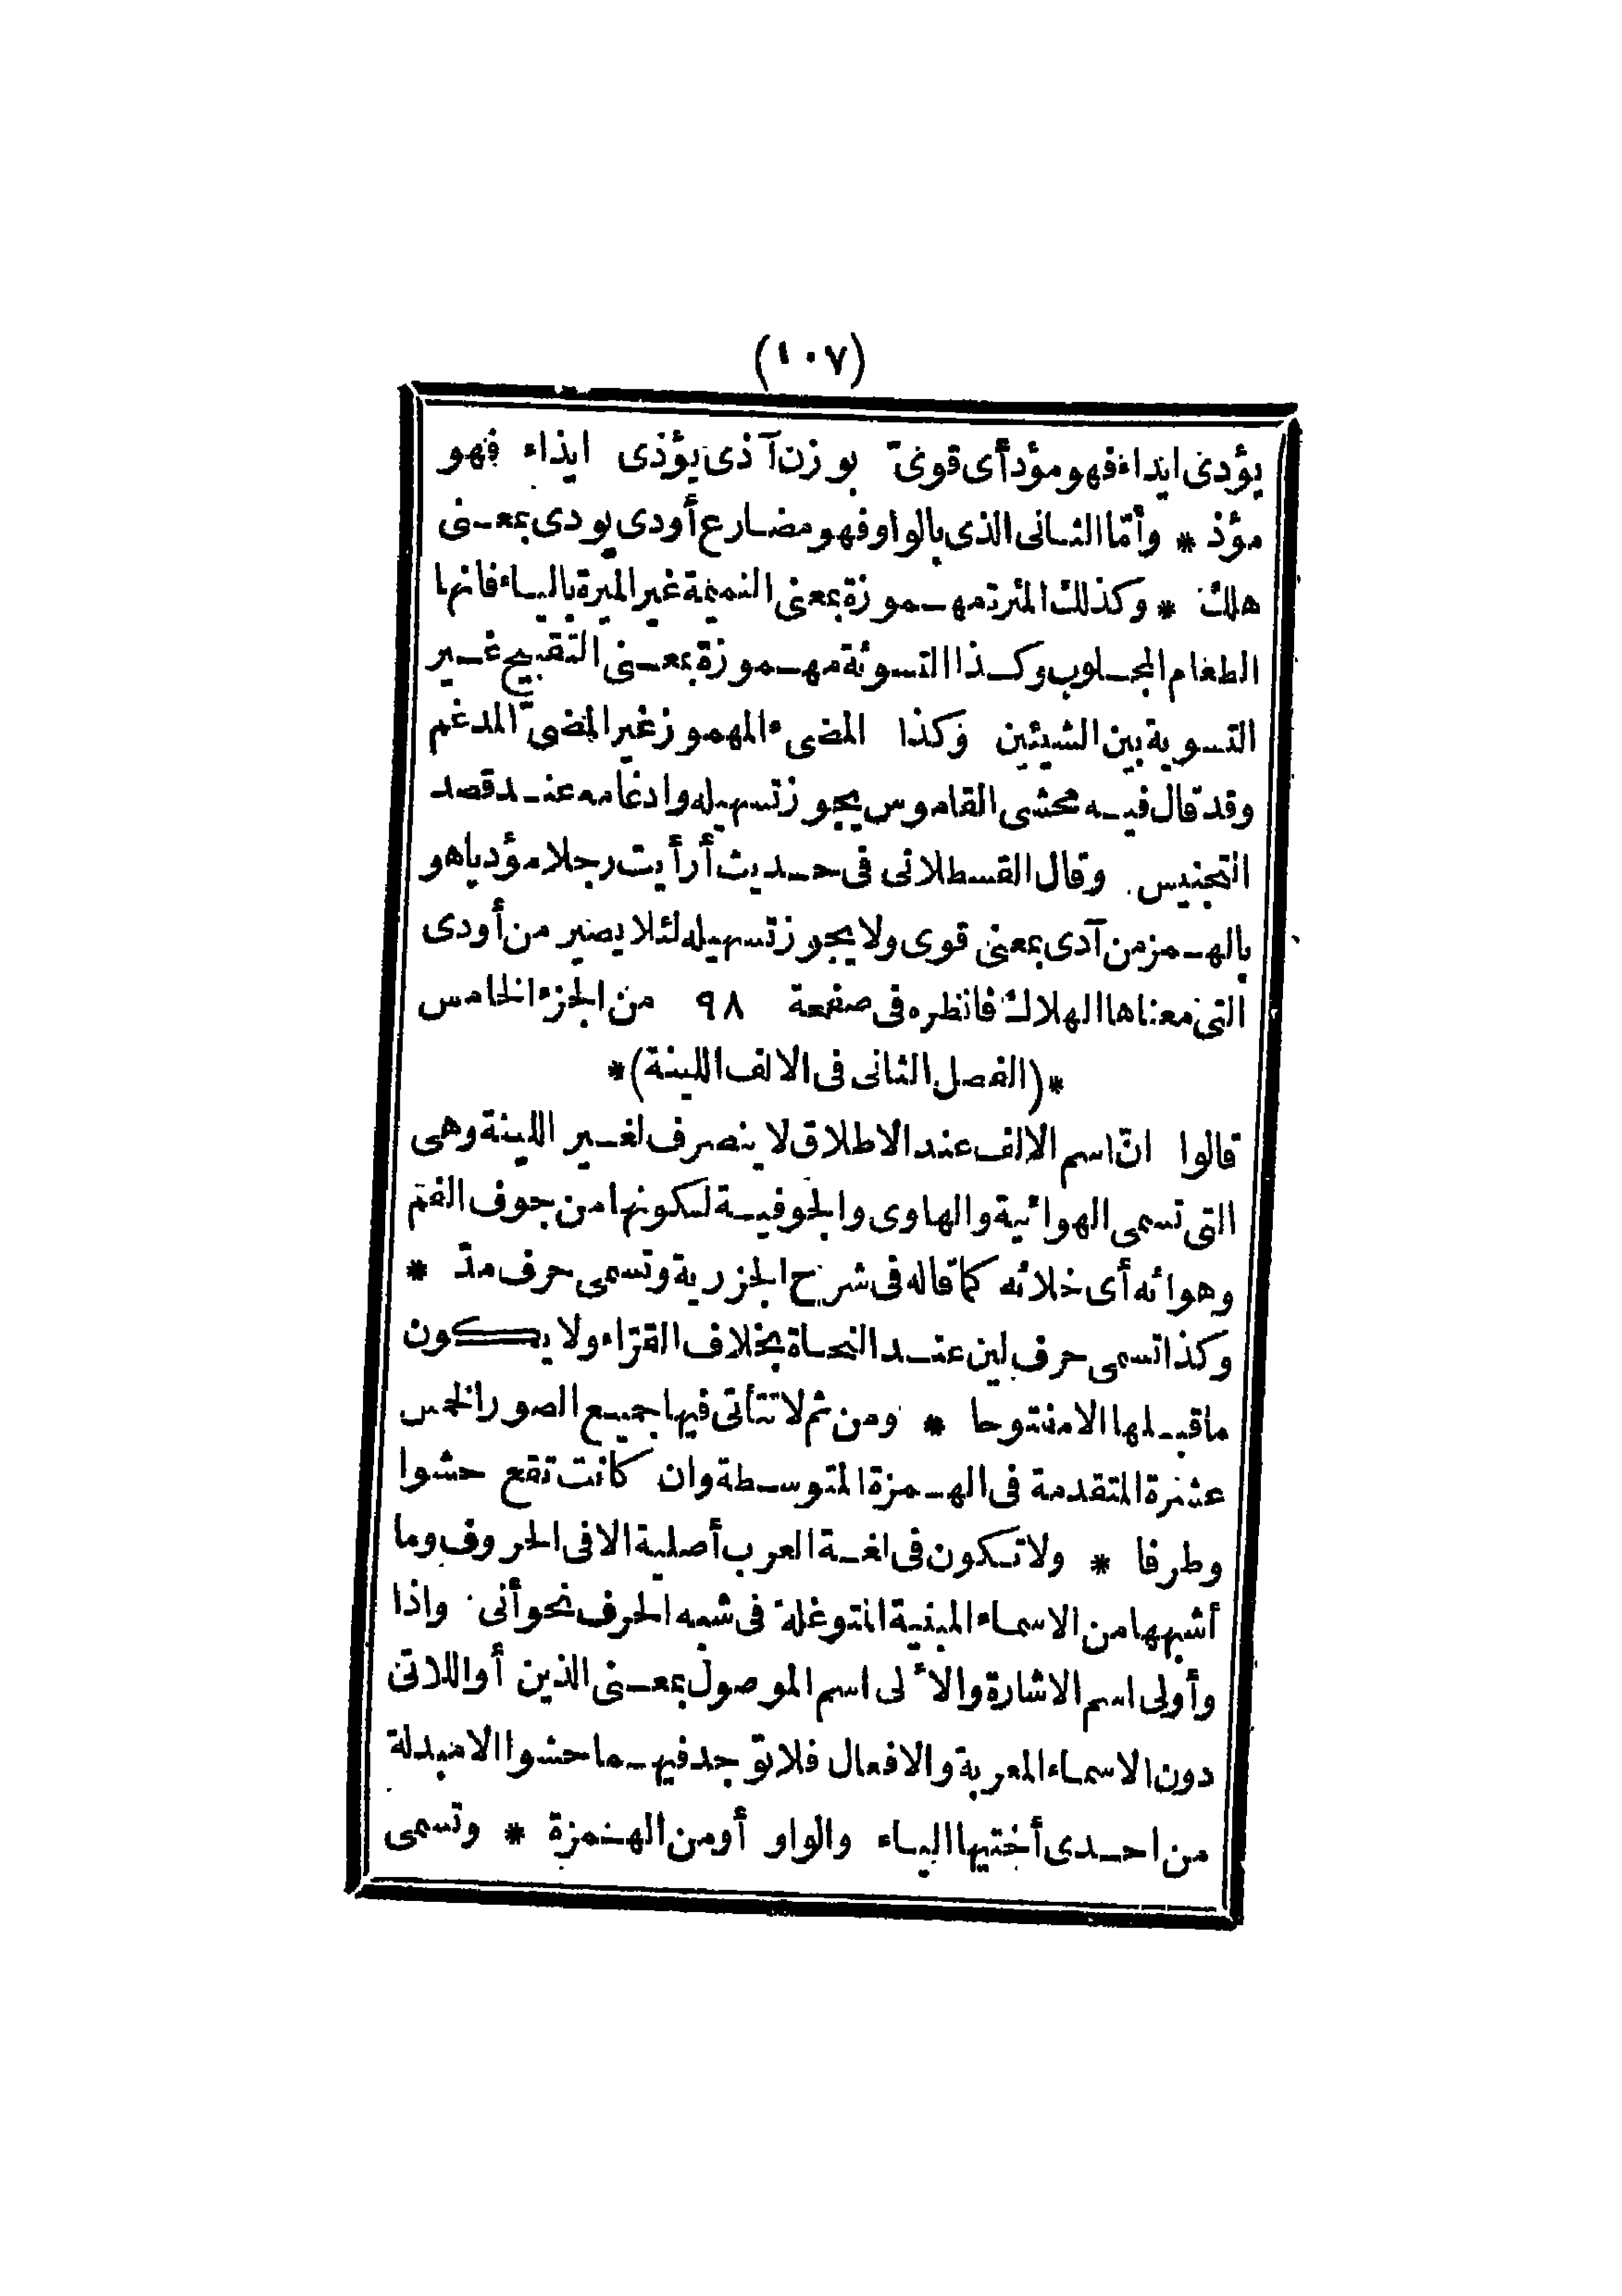 (١٠٧)
يؤدى ايداء فهو مؤد أى قوىّ بوزن آذى يؤذى ايذاء فهو
مؤذ * وأمّا الثانى الذى بالواو فهو مضارع أودى يودى بمعنى
هلك * وكذلك المئرة مهموزة بمعنى النميمة غير الميرة بالياء فانها
الطعام المجلوب وكذا التسوئة مهموزة بمعنى التقبيح غير
التسوية بين الشيئين وكذا المضىء المهموز غير المضىّ المدغم
وقد قال فيه محشى القاموس يجوز تسهيله وادغامه عند قصد
التجنيس وقال القسطلانى فى حديث أرأيت رجلا مؤديا هو
بالهمز من آدى بمعنى قوى ولا يجوز تسهيله لئلا يصير من أودى
التى معناها الهلاك فانظره فى صفحة ٩٨ من الجزء الخامس
*(الفصل الثانى فى الالف اللينة)*
قالوا انّ اسم الالف عند الاطلاق لا ينصرف لغير اللينة وهى
التى تسمى الهوائية والهاوى والجوفية لكونها من جوف الفم
وهوائه أى خلائه كما قاله فى شرح الجزرية وتسمى حرف مدّ *
وكذا تسمى حرف لين عند النحاة بخلاف القرّاء ولا يكون
ما قبلها الا مفتوحا * ومن ثم لا تتأتى فيها جميع الصور الخمس
عشرة المتقدمة فى الهمزة المتوسطة وان كانت تقع حشوا
وطرفا * ولا تكون فى لغة العرب أصلية الا فى الحروف وما
أشبهها من الاسماء المبنية المتوغلة فى شبه الحرف نحو أنى واذا
وأولى اسم الاشارة والاُلى اسم الموصول بمعنى الذين أو اللاتى
دون الاسماء المعربة والافعال فلا توجد فيهما حشوا الا مبدلة
من احدى أختيها الياء والواو أو من الهمزة * وتسمى